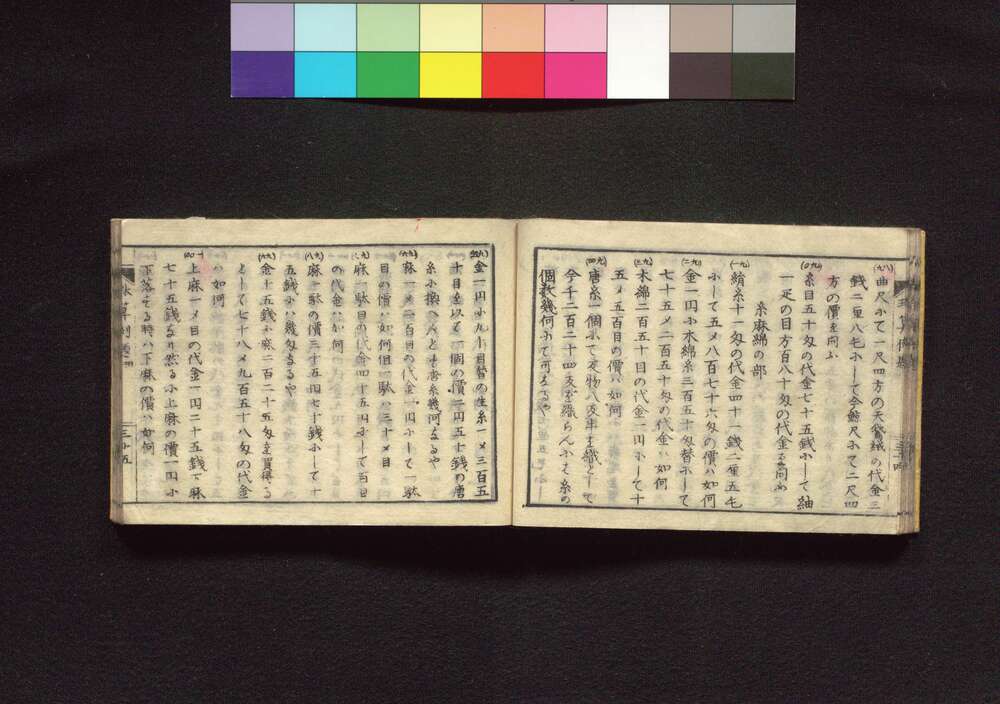 (八九)曲尺小て一尺四方の天鵞絨の代金三
銭二厘八毛小して今鯨尺小て二尺四
方の價を問ふ
(九〇)糸目五十匁の代金七十五銭小して紬
一疋の目方百八十匁の代金を問ふ
糸麻綿の部
(九一)絹糸十一匁の代金四十一銭二厘五毛
小して五〆八百七十六匁の價ハ如何
(九二)金一円小木綿糸三百五十匁替小して
七十五〆二百五十匁の代金ハ如何
(九三)木綿二百五十目の代金一円小して十
五〆五百目の價ハ如何
(九四)唐糸一個小て反物八反半を織として
今千二百二十四反を織らん小ハ糸の
個数幾何小て可なるや
(九五)金一円小九十目替の生糸一〆三百五
十目を以て一個の價二円五十銭の唐
糸小換へんとす唐糸幾何なるや
(九六)麻一〆二百目の代金一円小して一駄
目の價ハ如何但一駄ハ三十〆目
(九七)麻一駄目の代金四十五円小して百目
の代金ハ如何
(九八)麻一駄の價三十五円七十銭小して十
五銭小ハ幾匁なるや
(九九)金十五銭小麻二百二十五匁を買得る
として七十八〆九百五十八匁の代金
ハ如何
(一〇〇)上麻一〆目の代金一円二十五銭下麻
七十五銭なり然る小上麻の價一円小
下落する時ハ下麻の價ハ如何
三十五